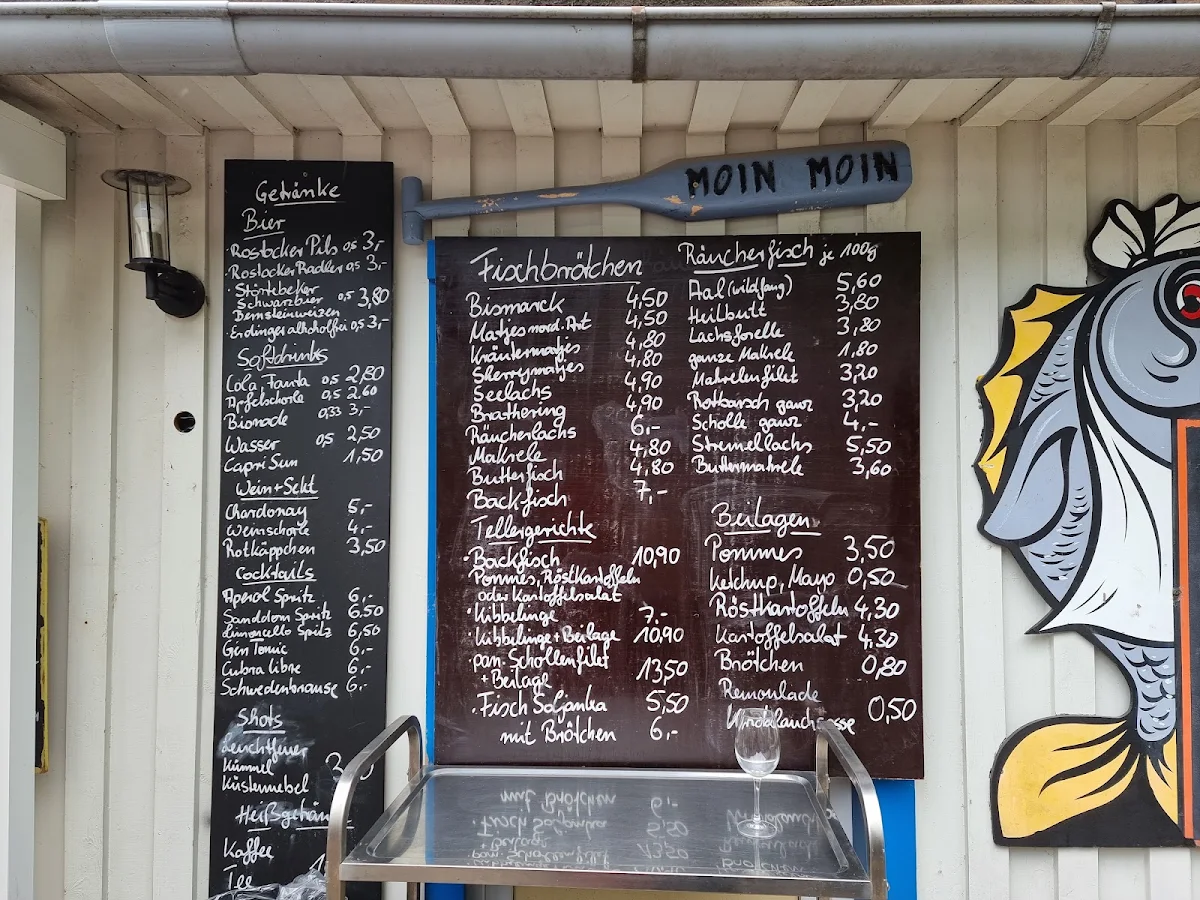 MOIN MOIN
Getränke
Bier
· Rostocker Pils 0,5 3,-
· Rostocker Radler 0,5 3,-
· Störtebeker
Schwarzbier 0,5 3,80
Bernsteinweizen
· Erdinger alkoholfrei 0,5 3,-
Softdrinks
Cola, Fanta 0,5 2,80
Apfelschorle 0,5 2,60
Bionade 0,33 3,-
Wasser 0,5 2,50
Capri Sun 1,50
Wein + Sekt
Chardonay 5,-
Weinschorle 4,-
Rotkäppchen 3,50
Cocktails
Aperol Spritz 6,-
Sanddorn Spritz 6,50
Limoncello Spritz 6,50
Gin Tonic 6,-
Cubra libre 6,-
Schwedenbrause 6,-
Shots
Leuchtfeuer
Kümmel
Küstennebel
Kaffee
Tee
Fischbrötchen
Bismarck 4,50
Matjes nord. Art 4,50
Kräutermatjes 4,80
Sherrymatjes 4,80
Seelachs 4,90
Brathering 4,90
Räucherlachs 6,-
Makrele 4,80
Butterfisch 4,80
Backfisch 7,-
Tellergerichte
· Backfisch 10,90
Pommes, Röstkartoffeln
oder Kartoffelsalat
· Kibbelinge 7,-
· Kibbelinge + Beilage 10,90
pan. Schollenfilet 13,50
+ Beilage
· Fisch Soljanka 5,50
mit Brötchen 6,-
Räucherfisch je 100g
Aal (wildfang) 5,60
Heilbutt 3,80
Lachsforelle 3,80
ganze Makrele 1,80
Makrelenfilet 3,20
Rotbarsch ganz 3,20
Scholle ganz 4,-
Stremellachs 5,50
Buttermakrele 3,60
Beilagen
Pommes 3,50
Ketchup, Mayo 0,50
Röstkartoffeln 4,30
Kartoffelsalat 4,30
Brötchen 0,80
Remoulade
0,50